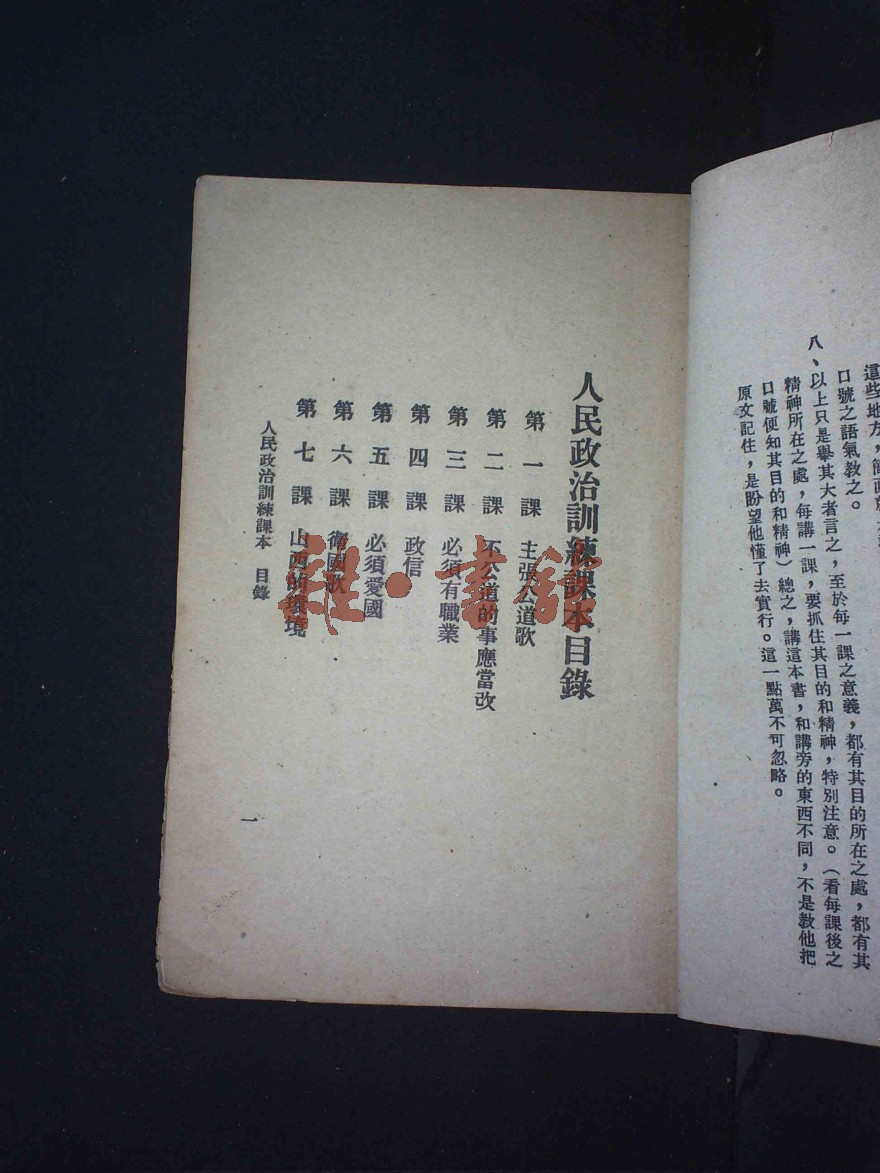 口號之語氣教之。
八、以上只是舉其大者言之，至於每一課之意義，都有其目的所在之處，都有其
精神所在之處，每講一課，要抓住其目的和精神，特別注意。（看每課後之
口號便知其目的和精神）總之，講這本書，和講旁的東西不同，不是教他把
原文記住，是盼望他懂了去實行。這一點萬不可忽略。
人民政治訓練課本目錄
第一課 主張公道歌
第二課 不公道的事應當改
第三課 必須有職業
第四課 政信
第五課 必須愛國
第六課 衛國歌
第七課 山西的環境
人民政治訓練課本 目錄
一
雜·書館